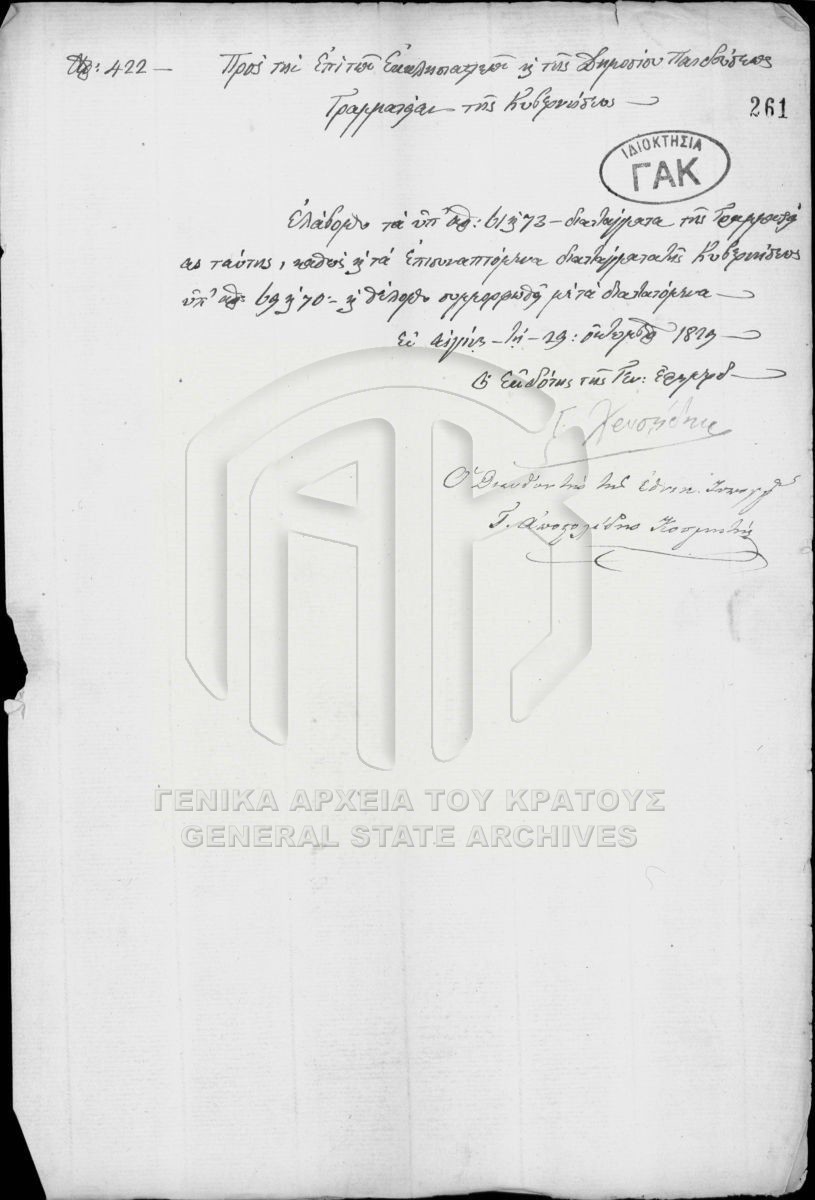 Ἀρ: 422 —
Πρὸς τὴν ἐπὶ τῶν Ἐκκλησιαστικῶν κ τῆς Δημοσίου Παιδεύσεως
Γραμματείαν τῆς Κυβερνήσεως —
261
ΙΔΙΟΚΤΗΣΙΑ
ΓΑΚ
Ἐλάβομεν τὰ ὑπ' ἀρ: 61 κ 73 — διατάγματα τῆς Γραμματεί
ας ταύτης, καθὼς κ τὰ ἐπισυναπτόμενα διατάγματα τῆς Κυβερνήσεως
ὑπ' ἀρ: 69 κ 70 — κ θέλομεν συμμορφωθῆ μὲ τὰ διαταττόμενα —
Ἐν Αἰγίνῃ — τῇ — 29: ὀκτωμβρ 1829 —
Ὁ ἐκδότης τῆς Γεν: Ἐφημερίδ —
Γ. Χρυσηίδης
Ὁ Διευθυντὴς τῆς ἐθνικ. Τυπογρ
Γ. Ἀποστολίδης Κοσμητής
ΓΕΝΙΚΑ ΑΡΧΕΙΑ ΤΟΥ ΚΡΑΤΟΥΣ
GENERAL STATE ARCHIVES